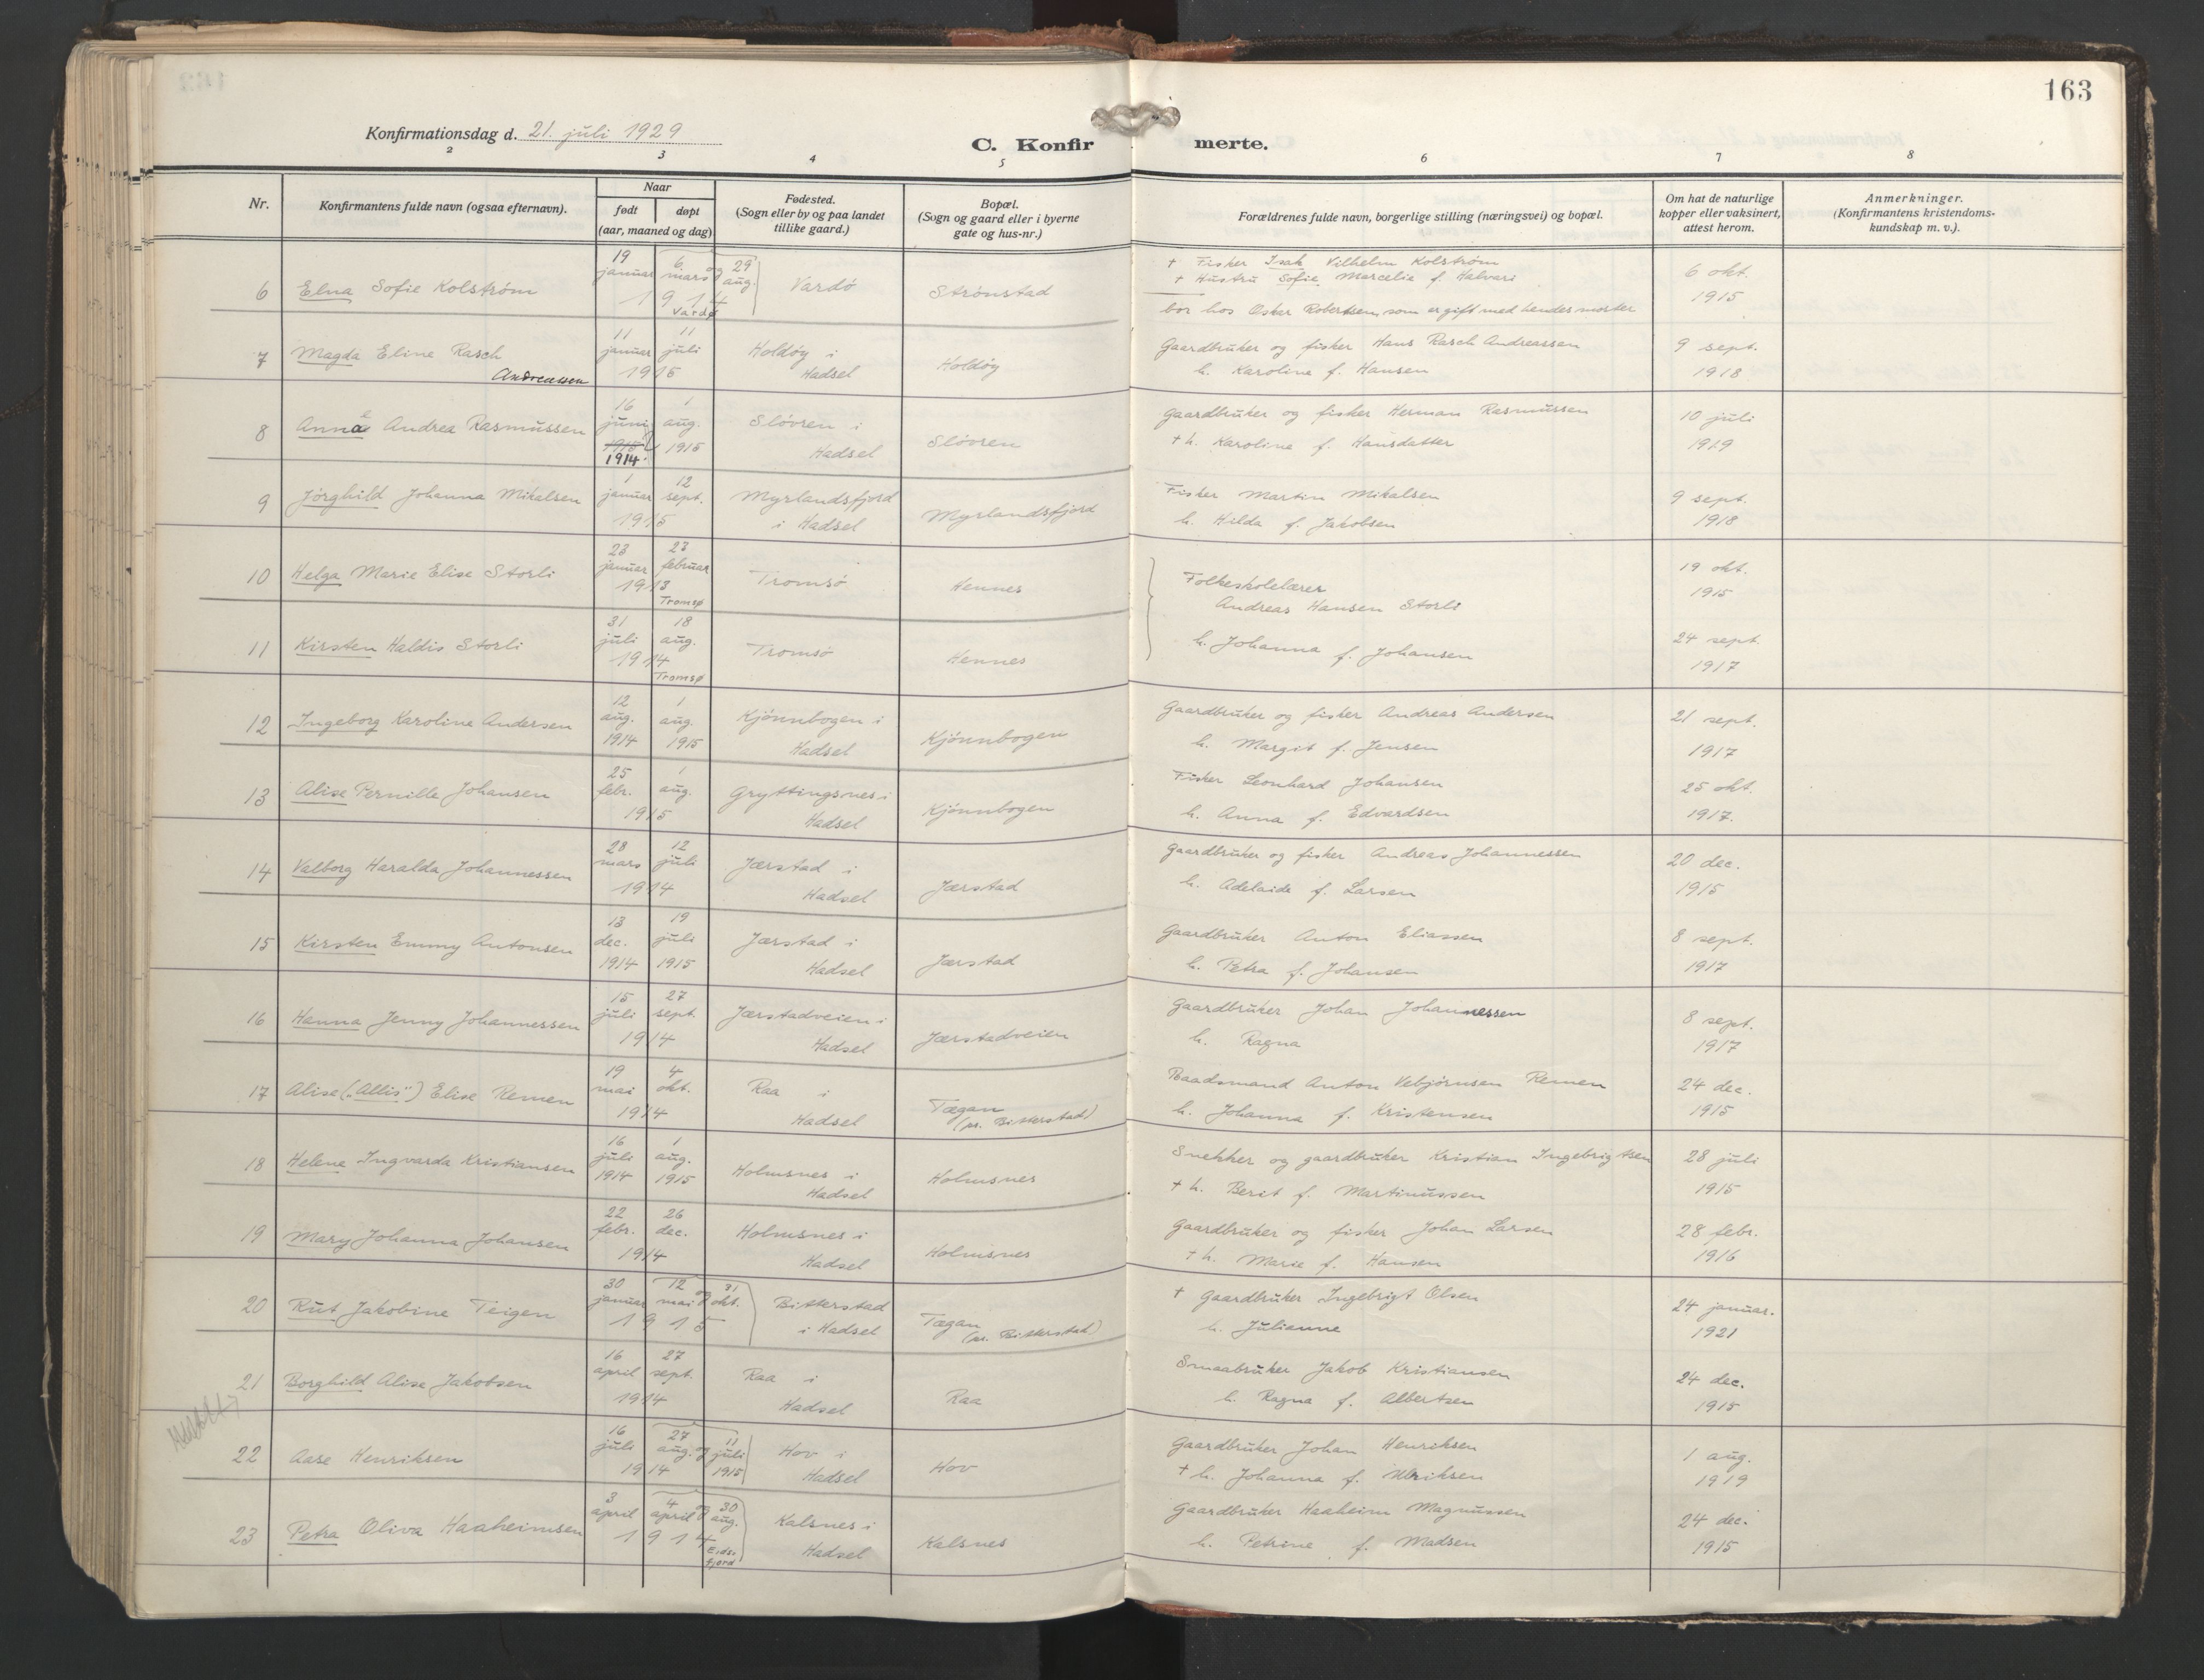 163
Konfirmationsdag d. 21. juli 1929
C. Konfirmerte.
2 3 4 5 6 7 8
Nr.
Konfirmantens fulde navn (ogsaa efternavn).
Naar
født døpt
(aar, maaned og dag)
Fødested.
(Sogn eller by og paa landet
tillike gaard.)
Bopæl.
(Sogn og gaard eller i byerne
gate og hus-nr.)
Forældrenes fulde navn, borgerlige stilling (næringsvei) og bopæl.
Om hat de naturlige
kopper eller vaksinert,
attest herom.
Anmerkninger.
(Konfirmantens kristendoms-
kundskap m. v.).
6 Elna Sofie Kolström
19 januar 6 mars og 29 aug. 1914 Vardø
Vardö
Strönstad
+ Fisker Isak Vilhelm Kolström
+ Hustru Sofie Marcelie f. Halvari
bor hos Oskar Robertsen, som er gift med hendes moster
6 okt.
1915
7 Magda Eline Rasch
Andreassen
11 januar 11 juli 1915
Holdöy i
Hadsel
Holdöy
Gaardbruker og fisker Hans Rasch Andreassen
h. Karoline f. Hansen
9 sept.
1918
8 Anna Andrea Rasmussen
16 juni 1915 1914. 1 aug. 1915
Slövren i
Hadsel
Slövren
Gaardbruker og fisker Herman Rasmussen
+ h. Karoline f. Hansdatter
10 juli
1919
9 Jörghild Johanna Mikalsen
1 januar 12 sept. 1915
Myrlandsfjord
i Hadsel
Myrlandsfjord
Fisker Martin Mikalsen
h. Hilda f. Jakobsen
9 sept.
1918
10 Helga Marie Elise Storli
23 januar 23 februar 1913 Tromsø
Tromsö
Hennes
Folkeskolelærer
Andreas Hansen Storli
19 okt.
1915
11 Kirsten Haldis Storli
31 juli 18 aug. 1914 Tromsø
Tromsö
Hennes
h. Johanna f. Johansen
24 sept.
1917
12 Ingeborg Karoline Andersen
12 aug. 1914 1 aug. 1915
Kjönnbogen i
Hadsel
Kjönnbogen
Gaardbruker og fisker Andreas Andersen
h. Margit f. Jensen
21 sept.
1917
13 Alise Pernille Johansen
25 febr. 1 aug. 1915
Gryttingsnes i
Hadsel
Kjönnbogen
Fisker Leonhard Johansen
h. Anna f. Edvardsen
25 okt.
1917.
14 Valborg Haralda Johannessen
28 mars 12 juli 1914
Jærstad i
Hadsel
Jærstad
Gaardbruker og fisker Andreas Johannessen
h. Adelaide f. Larsen
20 dec.
1915
15 Kirsten Emmy Antonsen
13 dec. 1914 19 juli 1915
Jærstad i
Hadsel
Jærstad
Gaardbruker Anton Eliassen
h. Petra f. Johansen
8 sept.
1917
16 Hanna Jenny Johannessen
15 juli 27 sept. 1914
Jærstadveien i
Hadsel
Jærstadveien
Gaardbruker Johan Johannessen
h. Ragna
8 sept.
1917
17 Alise („Allis") Elise Remen
19 mai 4 okt. 1914
Raa i
Hadsel
Tægan
(pr. Bitterstad)
Baadsmand Anton Vebjörnsen Remen
h. Johanna f. Kristensen
24 dec.
1915
18 Helene Ingvarda Kristiansen
16 juli 1914 1 aug. 1915
Holmsnes i
Hadsel
Holmsnes
Snekker og gaardbruker Kristian Ingebrigtsen
+ h. Berit f. Martinussen
28 juli
1915
19 Mary Johanna Johansen
22 febr. 26 dec. 1914
Holmsnes i
Hadsel
Holmsnes
Gaardbruker og fisker Johan Larsen
+ h. Marie f. Hansen
28 febr.
1916
20 Rut Jakobine Teigen
30 januar 12 mai og 31 okt. 1915
Bitterstad
i Hadsel
Tægan
(pr. Bitterstad)
+ Gaardbruker Ingebrigt Olsen
h. Julianne
24 januar.
1921
21 Borghild Alise Jakobsen
16 april 27 sept. 1914
Raa i
Hadsel
Raa
Smaabruker Jakob Kristiansen
h. Ragna f. Albertsen
24 dec.
1915
22 Aase Henriksen
16 juli 1914 27 aug. og 11 juli 1915
Hov i
Hadsel
Hov
Gaardbruker Johan Henriksen
+ h. Johanna f. Ulriksen
1 aug.
1919
23 Petra Oliva Haaheimsen
3 april 4 april og 30 aug. 1914 Eidsfjord
Kalsnes i
Hadsel
Kalsnes
Gaardbruker Haaheim Magnussen
h. Petrine f. Madsen
24 dec.
1915